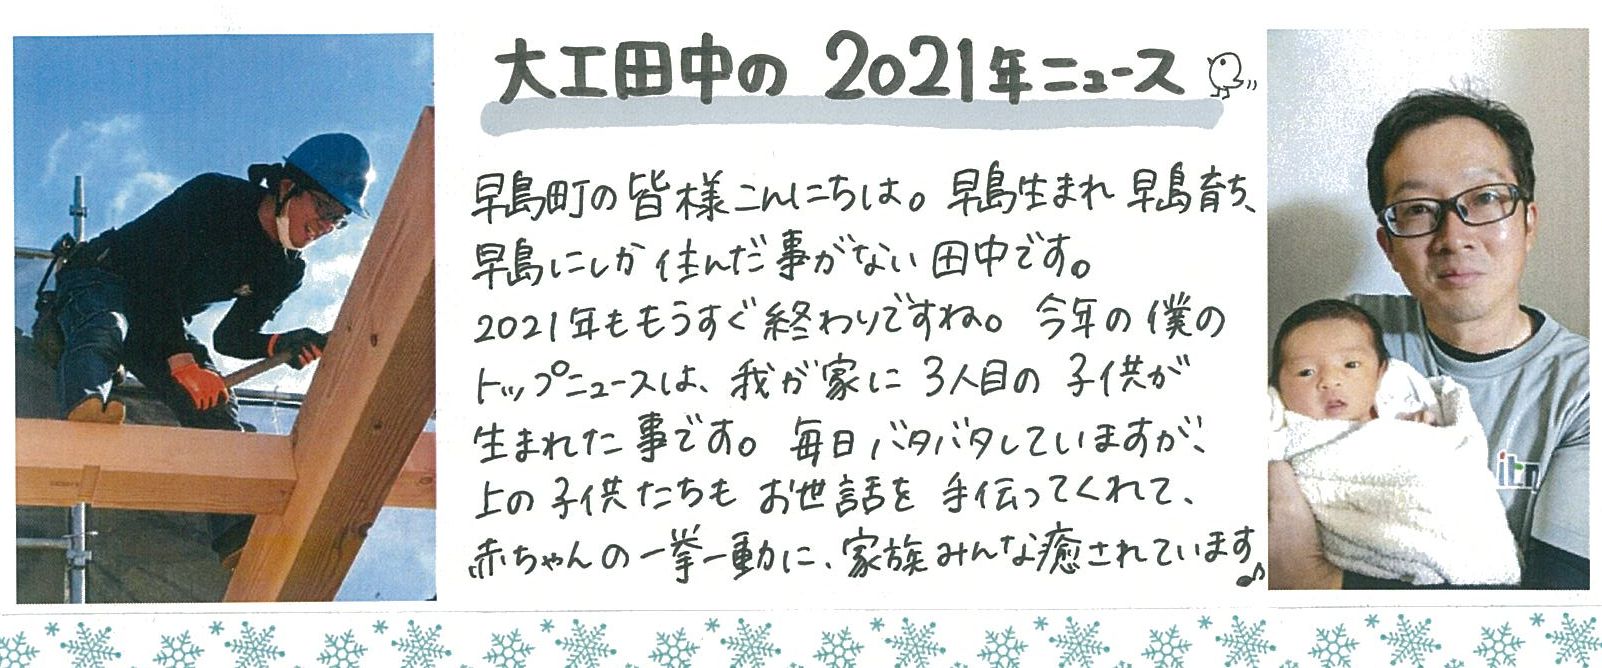 大工田中の 2021年ニュース
早島町の皆様こんにちは。早島生まれ 早島育ち、
早島にしか住んだ事がない田中です。
2021年ももうすぐ終わりですね。今年の僕の
トップニュースは、我が家に3人目の子供が
生まれた事です。毎日バタバタしていますが、
上の子供たちもお世話を手伝ってくれて、
赤ちゃんの一挙一動に、家族みんな癒されています♪